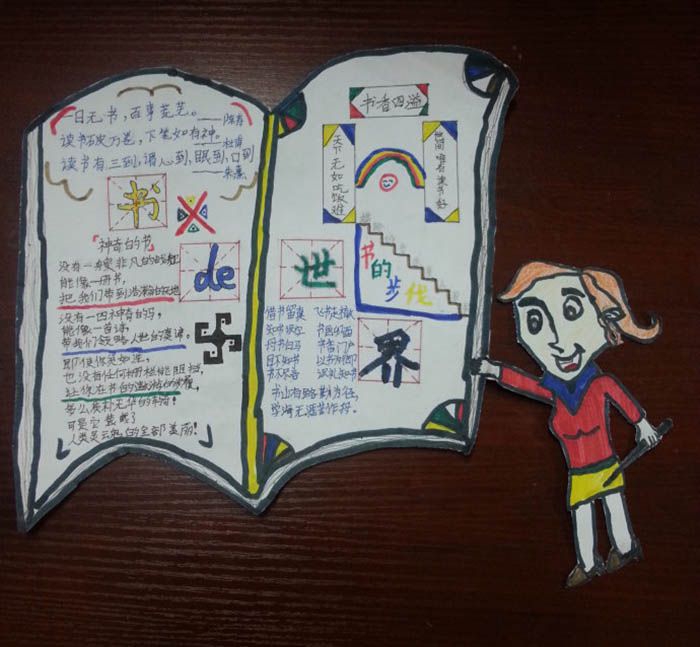 一日无书，百事荒芜。——陈寿
读书破万卷，下笔如有神。——杜甫
读书有三到，谓心到，眼到，口到
——朱熹
书
「神奇的书」
de
没有一艘非凡的
能像一册书，
把我们带到浩瀚的天地
没有一匹神奇的马，
能像一首诗，
带我们领略人世的真谛。
即使你贫如洗，
也没有任何栅栏能阻挡，
让你在书的遨游的
多么质朴无华的车骑！
可是它装载了
人类灵云的全部美丽！
书香四溢
天下无如吃饭难
世间唯有读书好
世
书的步伐
界
借书留真
知书识
书香门户
目不知书
书山有路勤为径，
学海无涯苦作舟。